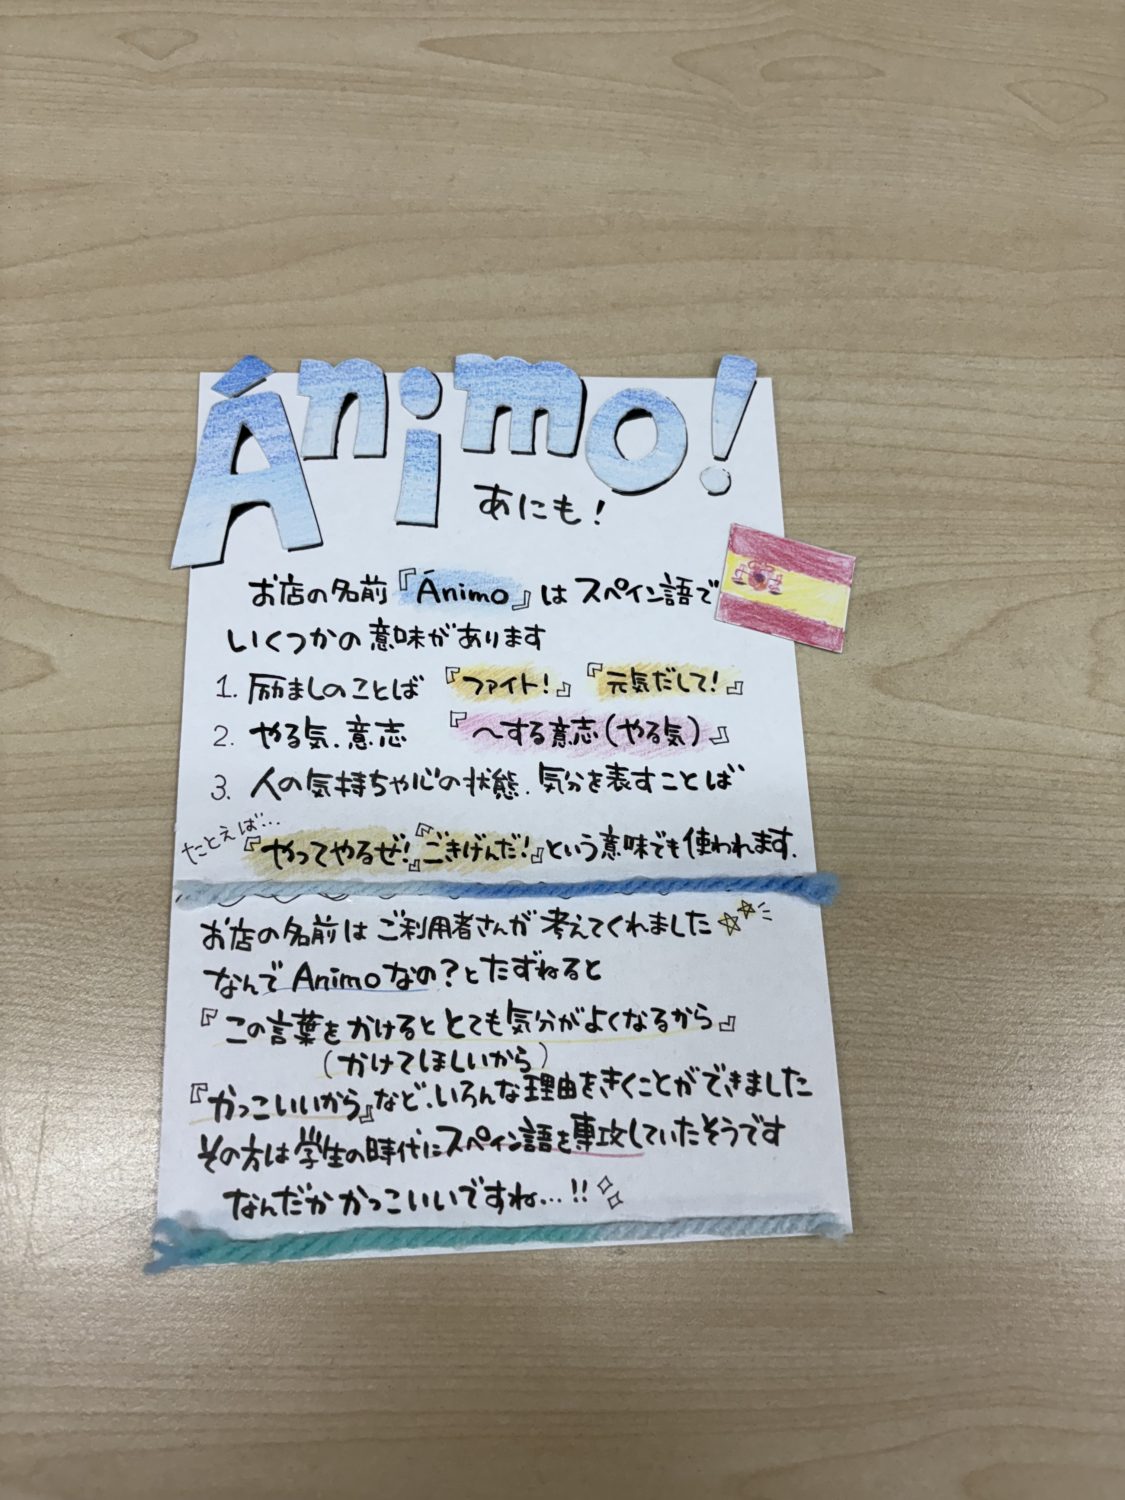 Ánimo!
あにも！
お店の名前『Ánimo』はスペイン語で
いくつかの意味があります
1. 励ましのことば 『ファイト！』 『元気だして！』
2. やる気、意志 『〜する意志(やる気)』
3. 人の気持ちや心の状態、気分を表すことば
たとえば…
『やってやるぜ！』『ごきげんだ！』という意味でも使われます.
お店の名前はご利用者さんが考えてくれました
なんでAnimoなの？とたずねると
『この言葉をかけるととても気分がよくなるから』
(かけてほしいから)
『かっこいいから』など、いろんな理由をきくことができました
その方は学生の時代にスペイン語を専攻していたそうです
なんだかかっこいいですね…!!